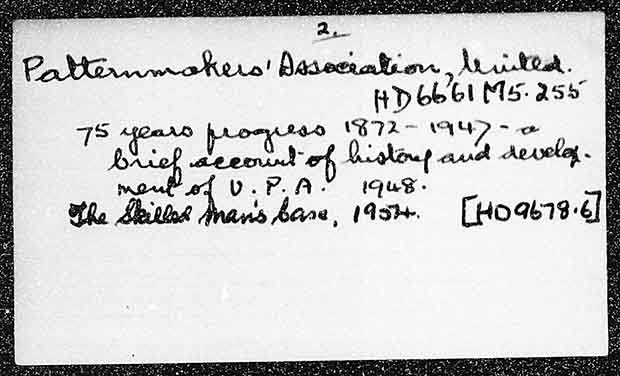 2.
Patternmakers' Association, United.
HD6661M5.255
75 years progress 1872-1947 - a
brief account of history and develop-
ment of U.P.A. 1948.
The Skilled Man's Case, 1954. [HD9678.6]